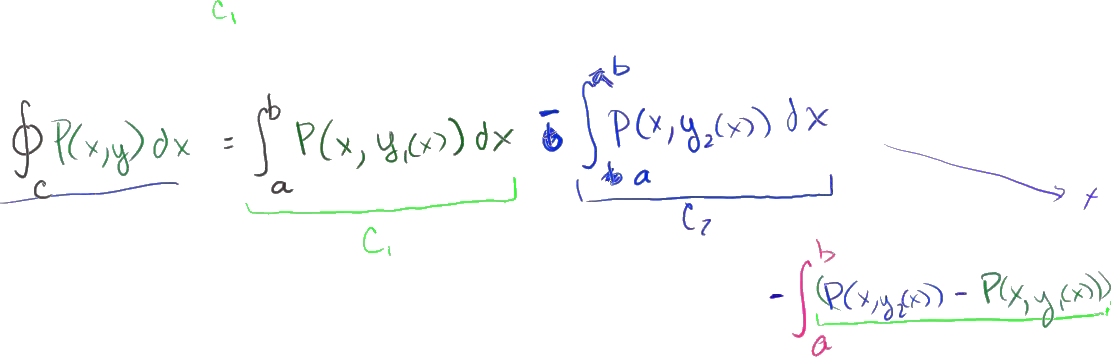 C₁
∮_C P(x,y) dx = ∫_a^b P(x, y₁(x)) dx - ∫_a^b P(x, y₂(x)) dx
C₁ C₂
- ∫_a^b (P(x,y₂(x)) - P(x, y₁(x)))